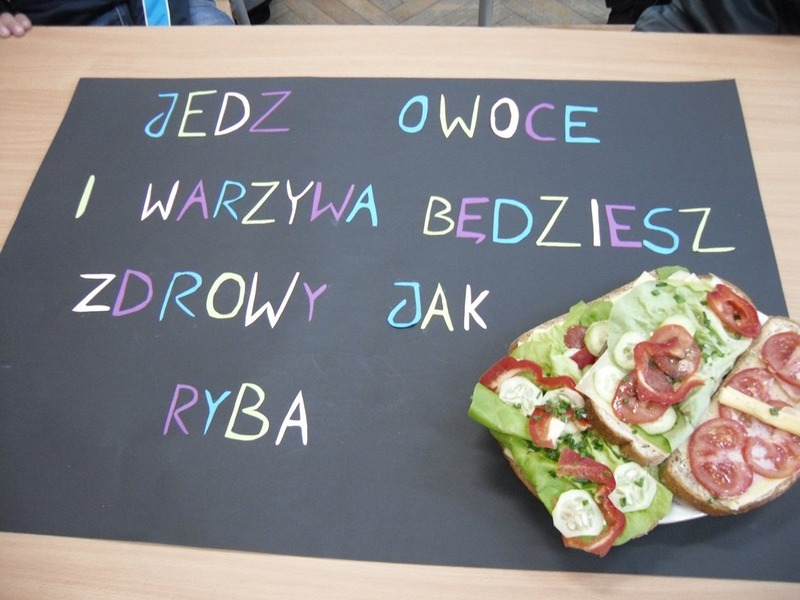 JEDZ OWOCE
I WARZYWA BĘDZIESZ
ZDROWY JAK
RYBA